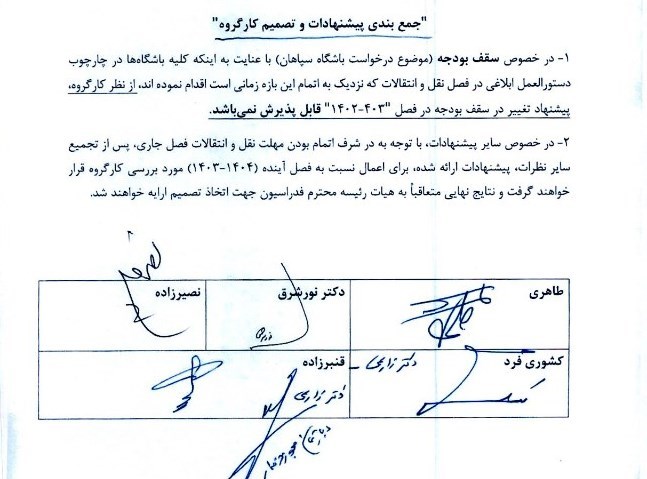 "جمع بندی پیشنهادات و تصمیم کارگروه"
۱- در خصوص سقف بودجه (موضوع درخواست باشگاه سپاهان) با عنایت به اینکه کلیه باشگاه‌ها در چارچوب
دستورالعمل ابلاغی در فصل نقل و انتقالات که نزدیک به اتمام این بازه زمانی است اقدام نموده اند، از نظر کارگروه،
پیشنهاد تغییر در سقف بودجه در فصل "۴۰۳-۱۴۰۲" قابل پذیرش نمی‌باشد.
۲- در خصوص سایر پیشنهادات، با توجه به در شرف اتمام بودن مهلت نقل و انتقالات فصل جاری، پس از تجمیع
سایر نظرات، پیشنهادات ارائه شده، برای اعمال نسبت به فصل آینده (۱۴۰۴-۱۴۰۳) مورد بررسی کارگروه قرار
خواهند گرفت و نتایج نهایی متعاقباً به هیات رئیسه محترم فدراسیون جهت اتخاذ تصمیم ارایه خواهند شد.
طاهری
دکتر نورشرق
نصیرزاده
کشوری فرد
قنبرزاده